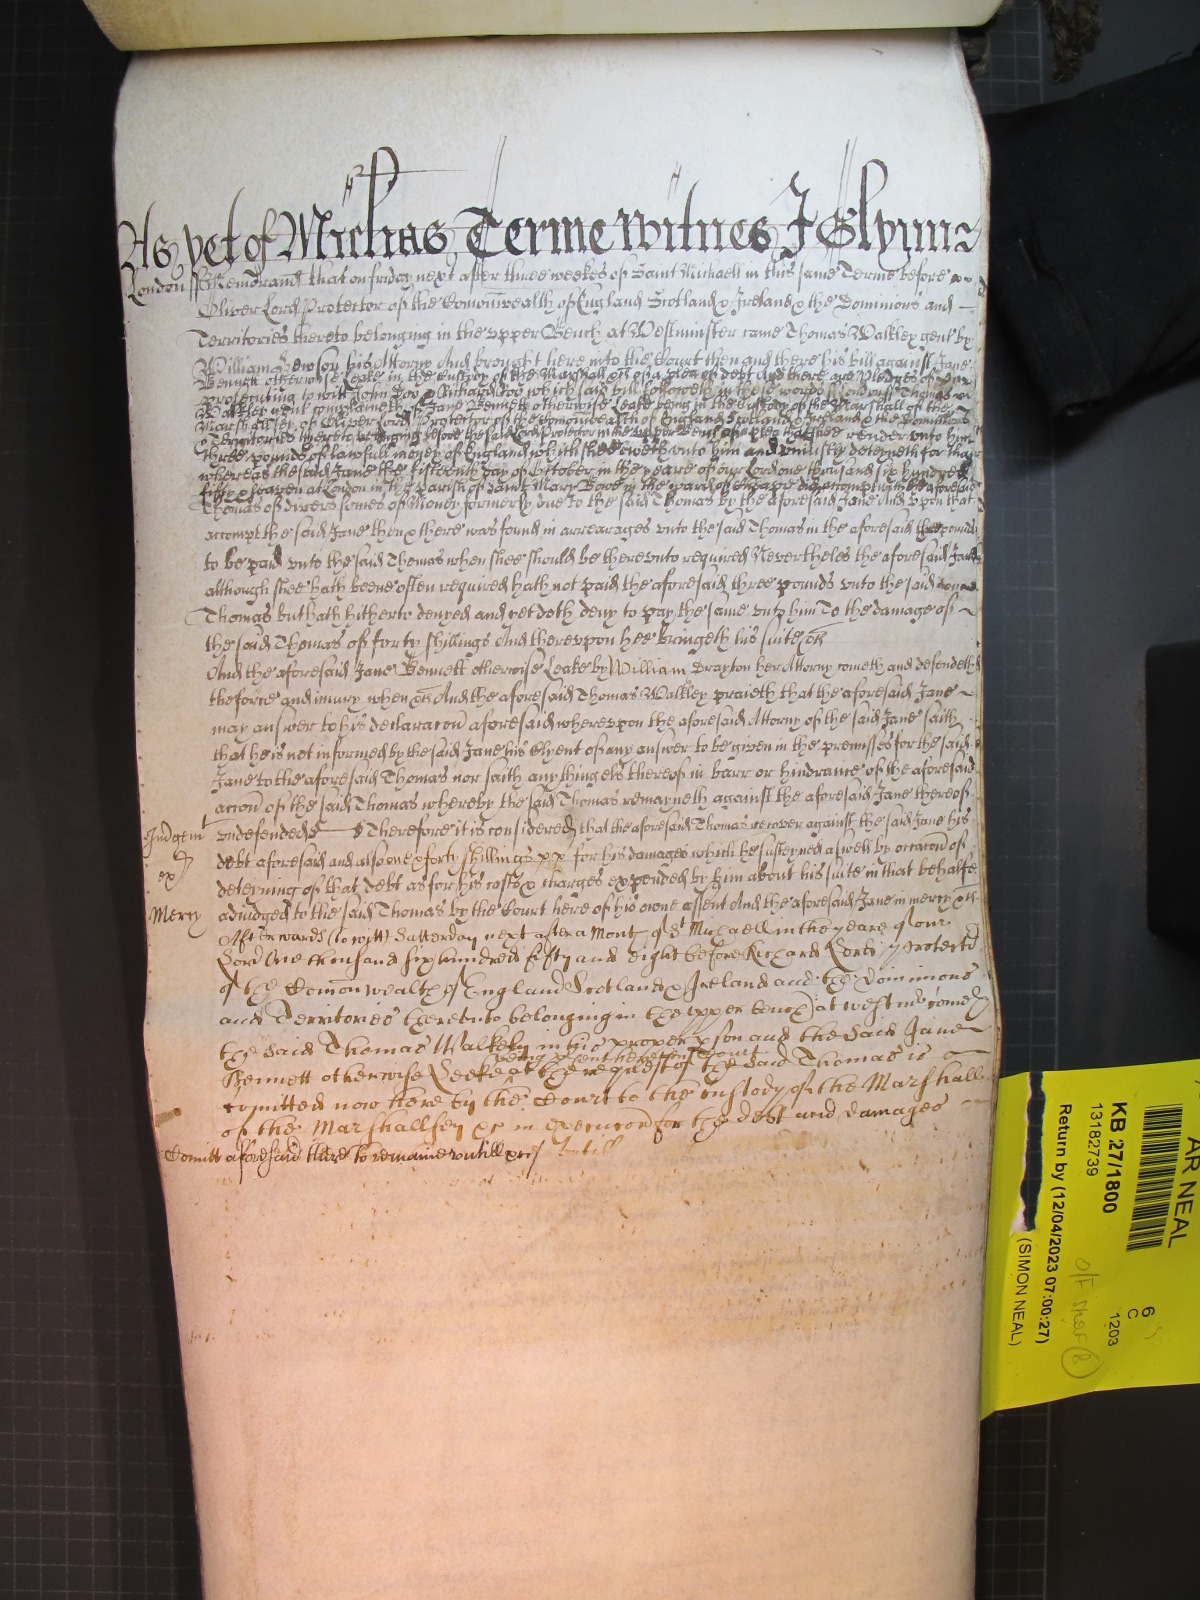 As yet of Michas Terme witnes J Glynn
London ss Remembrand that on friday next after three weekes of Saint Michaell in this same Terme before
Oliver Lord Protector of the Comonwealth of England Scotland & Ireland & the Dominions and
Territories thereto belonging in the upper Bench at Westminster came Thomas Walkley gent by
William Hewson his Attorny And brought here into the Court then and there his bill against Jane
Bennett otherwise Leake in the custody of the Marshall &c of a plea of debt And there are pledges of
prosecuting to witt John Doo & Richard Roo which said bill followeth in these words London ss Thomas
Walkley gent complaineth of Jane Bennett otherwise Leake being in the custody of the Marshall of the
Marshallsey of Oliver Lord Protector of the Comonwealth of England Scotland & Ireland & the Dominions
& Territories thereto belonging before the said Lord Protector in the upper Bench of a plea that shee render unto him
three pounds of lawfull money of England which shee oweth unto him and uniustly deteyneth for that
whereas the said Jane the fifteenth day of October in the yeare of our Lord one thousand six hundred
fifty & seaven at London in the Parish of Saint Mary Bowe in the ward of Cheape did accompt with the aforesaid
Thomas of divers somes of Money formerly due to the said Thomas by the aforesaid Jane And upon that
accompt the said Jane then & there was found in arrearages unto the said Thomas in the aforesaid three pounds
to be paid unto the said Thomas when shee should be thereunto required Nevertheles the aforesaid Jane
although shee hath beene often required hath not paid the aforesaid three pounds unto the said
Thomas but hath hitherto denyed and yet doth deny to pay the same unto him To the damage of
the said Thomas of forty shillings And thereupon hee bringeth his suite &c
And the aforesaid Jane Bennett otherwise Leake by William Drayton her Attorny cometh and defendeth
the force and iniury when &c And the aforesaid Thomas Walkley praieth that the aforesaid Jane
may answer to his declaracon aforesaid whereupon the aforesaid Attorny of the said Jane saith
that he is not informed by the said Jane his Clyent of any answer to be given in the premisses for the said
Jane to the aforesaid Thomas nor saith any thing els thereof in barr or hindrance of the aforesaid
accon of the said Thomas whereby the said Thomas remayneth against the aforesaid Jane thereof
Judgemt undefended Therefore it is considered that the aforesaid Thomas recover against the said Jane his
debt aforesaid and also one & forty shillings for his damages which he susteyned aswell by occacon of
ex deteyning of that debt as for his costs & charges expended by him about his suite in that behalfe
Mercy adiudged to the said Thomas by the Court here of his owne assent And the aforesaid Jane in mercy &c
Afterwards (to witt) Satterday next after a Month of St Michaell in the yeare of our
Lord One thousand six hundred fifty and eight before Richard Lord Protector
of the Comonwealth of England Scotland & Ireland and the Dominions
and Territories thereunto belonging in the upper bench at westmr cometh
the said Thomas Walkely in his proper pson and the said Jane
being psent here in Court
Bennett otherwise Leeke at the request of the said Thomas is
comitted now here by the Court to the custody of the Marshall
of the Marshallsey &c in execucon for the debt and damages
Comitt aforesaid there to remaine untill &c
AR NEAL
KB 27/1800
13182739
Return by (12/04/2023 07:00:27)
(SIMON NEAL)
6
C
1203